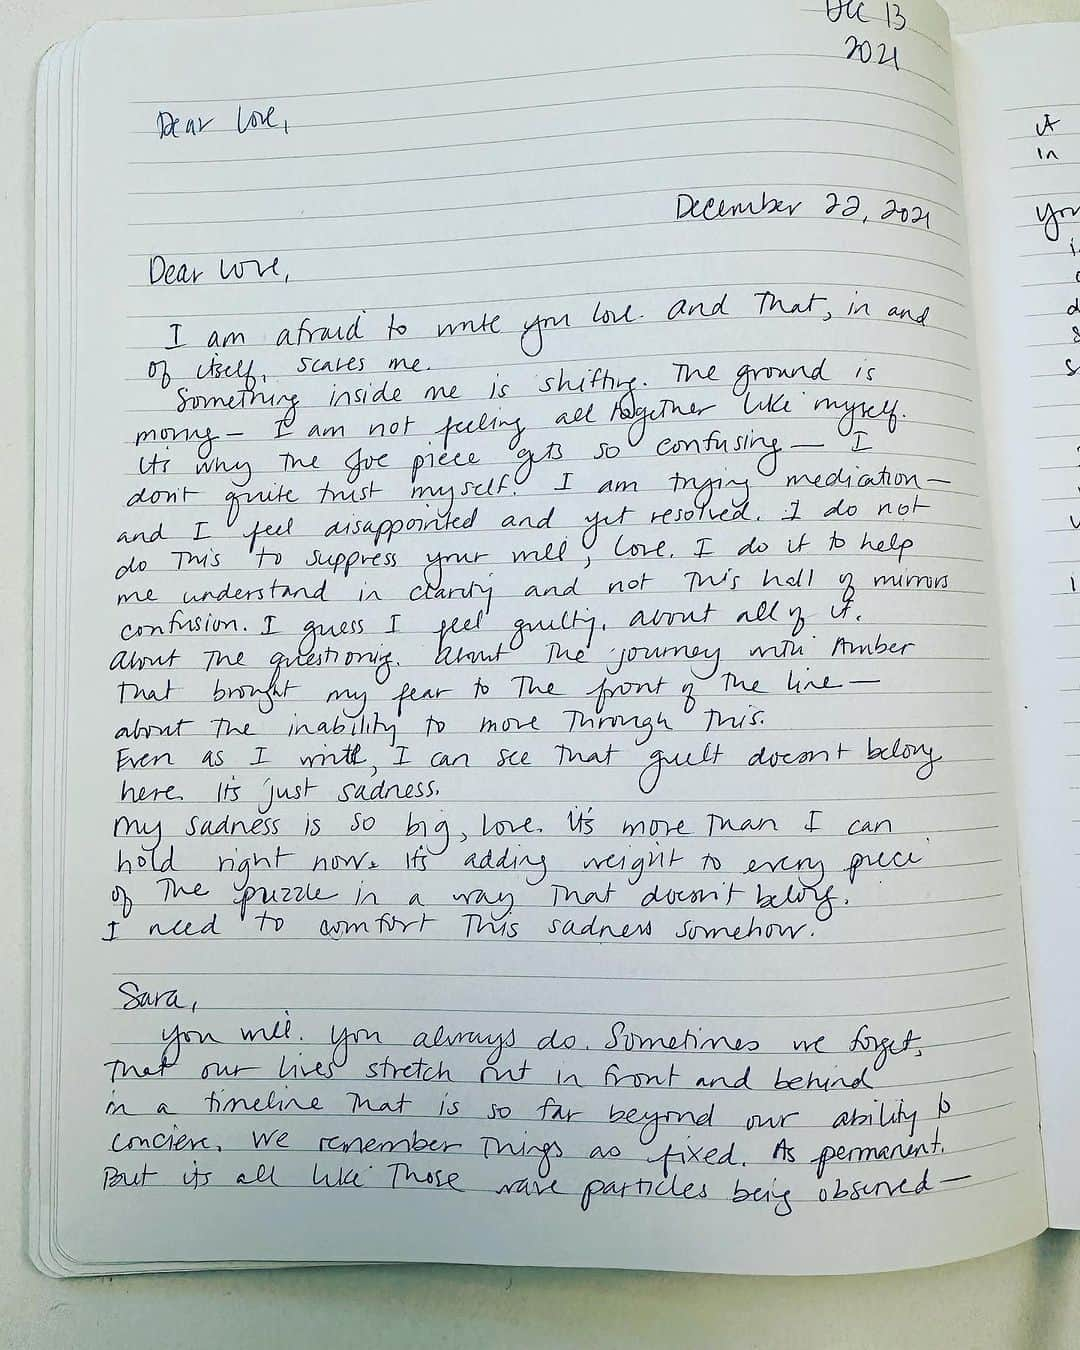 Dec 13
2021
Dear Love,
December 22, 2021
Dear Love,
I am afraid to write you love. and That, in and
of itself, scares me.
Something inside me is shifting. The ground is
moving — I am not feeling all together like myself.
Its why the Joe piece gets so confusing — I
don't quite trust myself. I am trying medication —
and I feel disappointed and yet resolved. I do not
do This to suppress your will, love. I do it to help
me understand in clarity and not This hall of mirrors
confusion. I guess I feel guilty. about all of it.
About The questioning. About The journey with Amber
that brought my fear to The front of The line —
about The inability to move Through This.
Even as I write, I can see That guilt doesn't belong
here. It's just sadness.
My sadness is so big, love. It's more Than I can
hold right now. It's adding weight to every piece
of The puzzle in a way That doesn't belong.
I need to comfort This sadness somehow.
Sara,
You will. You always do. Sometimes we forget,
That our lives stretch out in front and behind
in a timeline That is so far beyond our ability to
conciere. We remember Things as fixed. As permanent.
But its all like Those wave particles being observed —
A
in
you